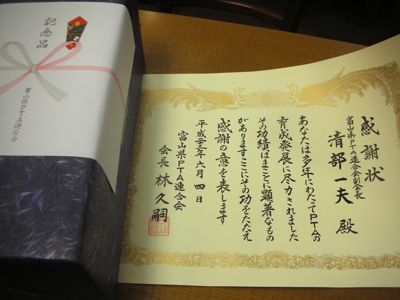 記念品
富山県PTA連合会
感謝状
富山県PTA連合会副会長
清部一夫 殿
あなたは多年にわたってPTAの
育成発展に尽力されました
その功績はまことに顕著なもの
がありますここにその功をたたえ
感謝の意を表します
平成二十三年六月四日
富山県PTA連合会
会長 林久嗣